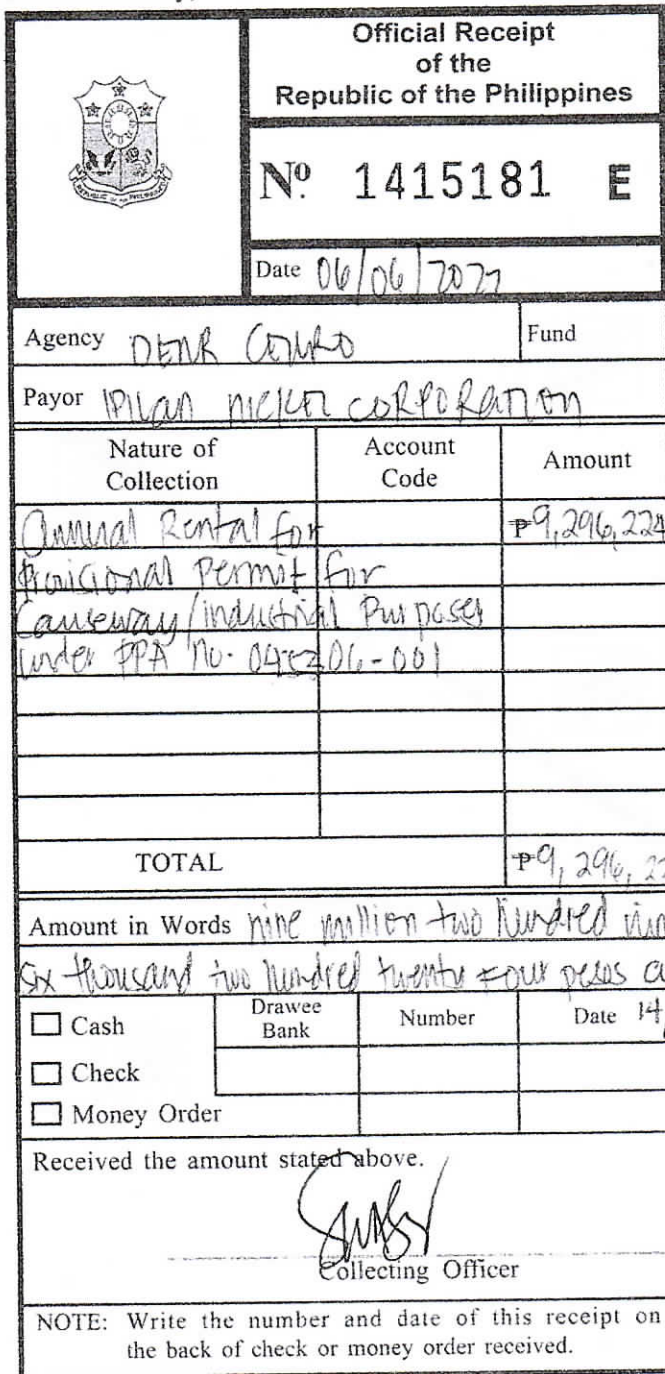 Official Receipt
of the
Republic of the Philippines
Nº 1415181 E
Date 06/06/2022
Agency DENR
Fund
Payor IPILAN NICKEL CORPORATION
Nature of Collection
Account Code
Amount
Annual Rental for ₱9,296,224
Provisional Permit for
Causeway/Industrial Purposes
under PPA No.
TOTAL ₱9,296,22
Amount in Words nine million two hundred nin
six thousand two hundred twenty four pesos a
Cash
Drawee Bank
Number
Date 14
Check
Money Order
Received the amount stated above.
Collecting Officer
NOTE: Write the number and date of this receipt on
the back of check or money order received.